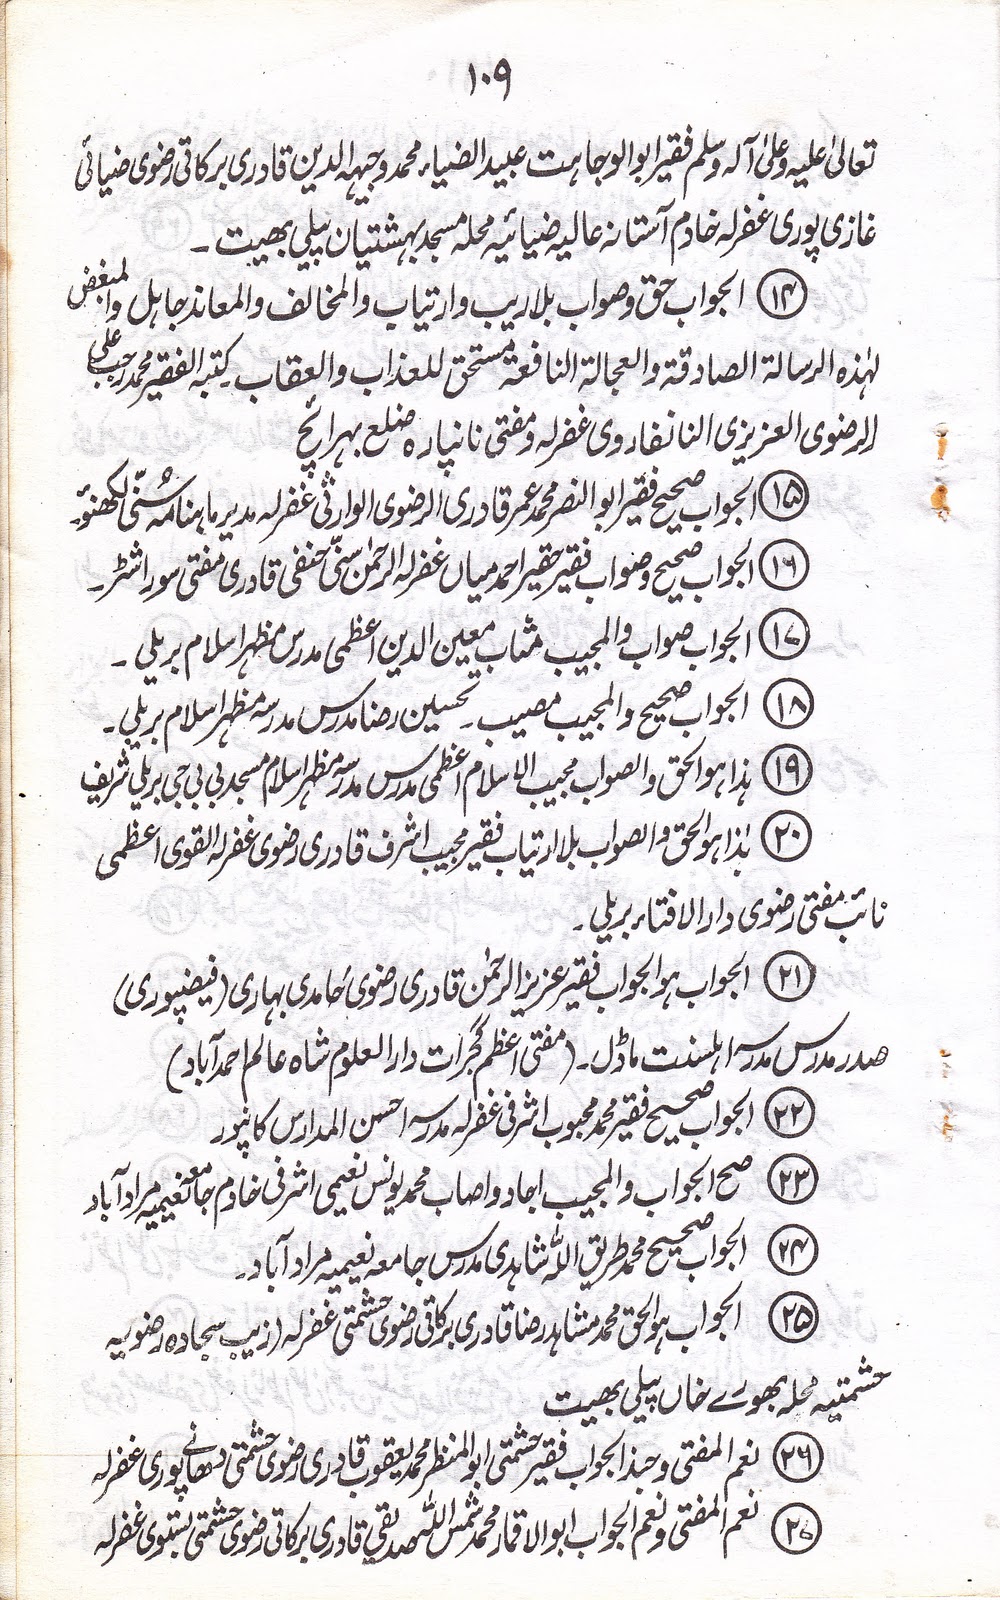 ۱۰۹
تعالیٰ علیہ وعلیٰ آلہ وسلم فقیر ابو الوجاہت عبید الضیاء محمد وجیہہ الدین قادری برکاتی رضوی ضیائی
غازی پوری غفرلہ خادم آستانہ عالیہ ضیائیہ محلہ مسجد بہشتیان پیلی بھیت ۔
(۱۴) الجواب حق وصواب بلا ریب وارتیاب والمخالف والمعاند جاہل والمبغض
لہٰذہ الرسالۃ الصادقۃ والعجالۃ النافعۃ مستحق للعذاب والعقاب ۔ کتبہ الفقیر محمد رجب علی
الرضوی العزیزی النانفاروی غفرلہ ومفتی نانپارہ ضلع بہرائچ
(۱۵) الجواب صحیح فقیر ابو النصر محمد عمر قادری الرضوی الوارثی غفرلہ مدیر ماہنامہ سُنّی لکھنؤ ۔
(۱۶) الجواب صحیح وصواب فقیر حقیر احمد میاں غفرلہ الرحمٰن سنّی حنفی قادری مفتی سوراشٹر ۔
(۱۷) الجواب صواب والمجیب مثاب معین الدین اعظمی مدرس مظہر اسلام بریلی ۔
(۱۸) الجواب صحیح والمجیب مصیب ۔ تحسین رضا مدرس مدرسہ مظہر اسلام بریلی ۔
(۱۹) ہذا ہو الحق والصواب مجیب الاسلام اعظمی مدرس مدرسہ مظہر اسلام مسجد بی بی جی بریلی شریف
(۲۰) ہٰذا ہو الحق والصواب بلا ارتیاب فقیر مجیب اشرف قادری رضوی غفرلہ القوی اعظمی
نائب مفتی رضوی دارالافتاء بریلی ۔
(۲۱) الجواب ہو الجواب فقیر عزیز الرحمٰن قادری رضوی حامدی بہاری (فیضپوری)
صدر مدرس مدرسہ اہلسنت ماڈل ۔ (مفتی اعظم گجرات دارالعلوم شاہ عالم احمد آباد)
(۲۲) الجواب صحیح فقیر محمد محبوب اشرفی غفرلہ مدرسہ احسن المدارس کانپور
(۲۳) صح الجواب والمجیب اجاد واصاب محمد یونس نعیمی اشرفی خادم جامعہ نعیمیہ مراد آباد
(۲۴) الجواب صحیح محمد طریق اللہ شاہدی مدرس جامعہ نعیمیہ مراد آباد ۔
(۲۵) الجواب ہو الحق محمد مشاہد رضا قادری برکاتی رضوی حشمتی غفرلہ (زیب سجادہ رضویہ
حشمتیہ محلہ بھورے خاں پیلی بھیت
(۲۶) نعم المفتی وحبذ الجواب فقیر حشمتی ابو المنظر محمد یعقوب قادری رضوی حشمتی دھانے پوری غفرلہ
(۲۷) نعم المفتی ونعم الجواب ابوالاقمار محمد شمس اللہ صدیقی قادری برکاتی رضوی حشمتی بستوی غفرلہ